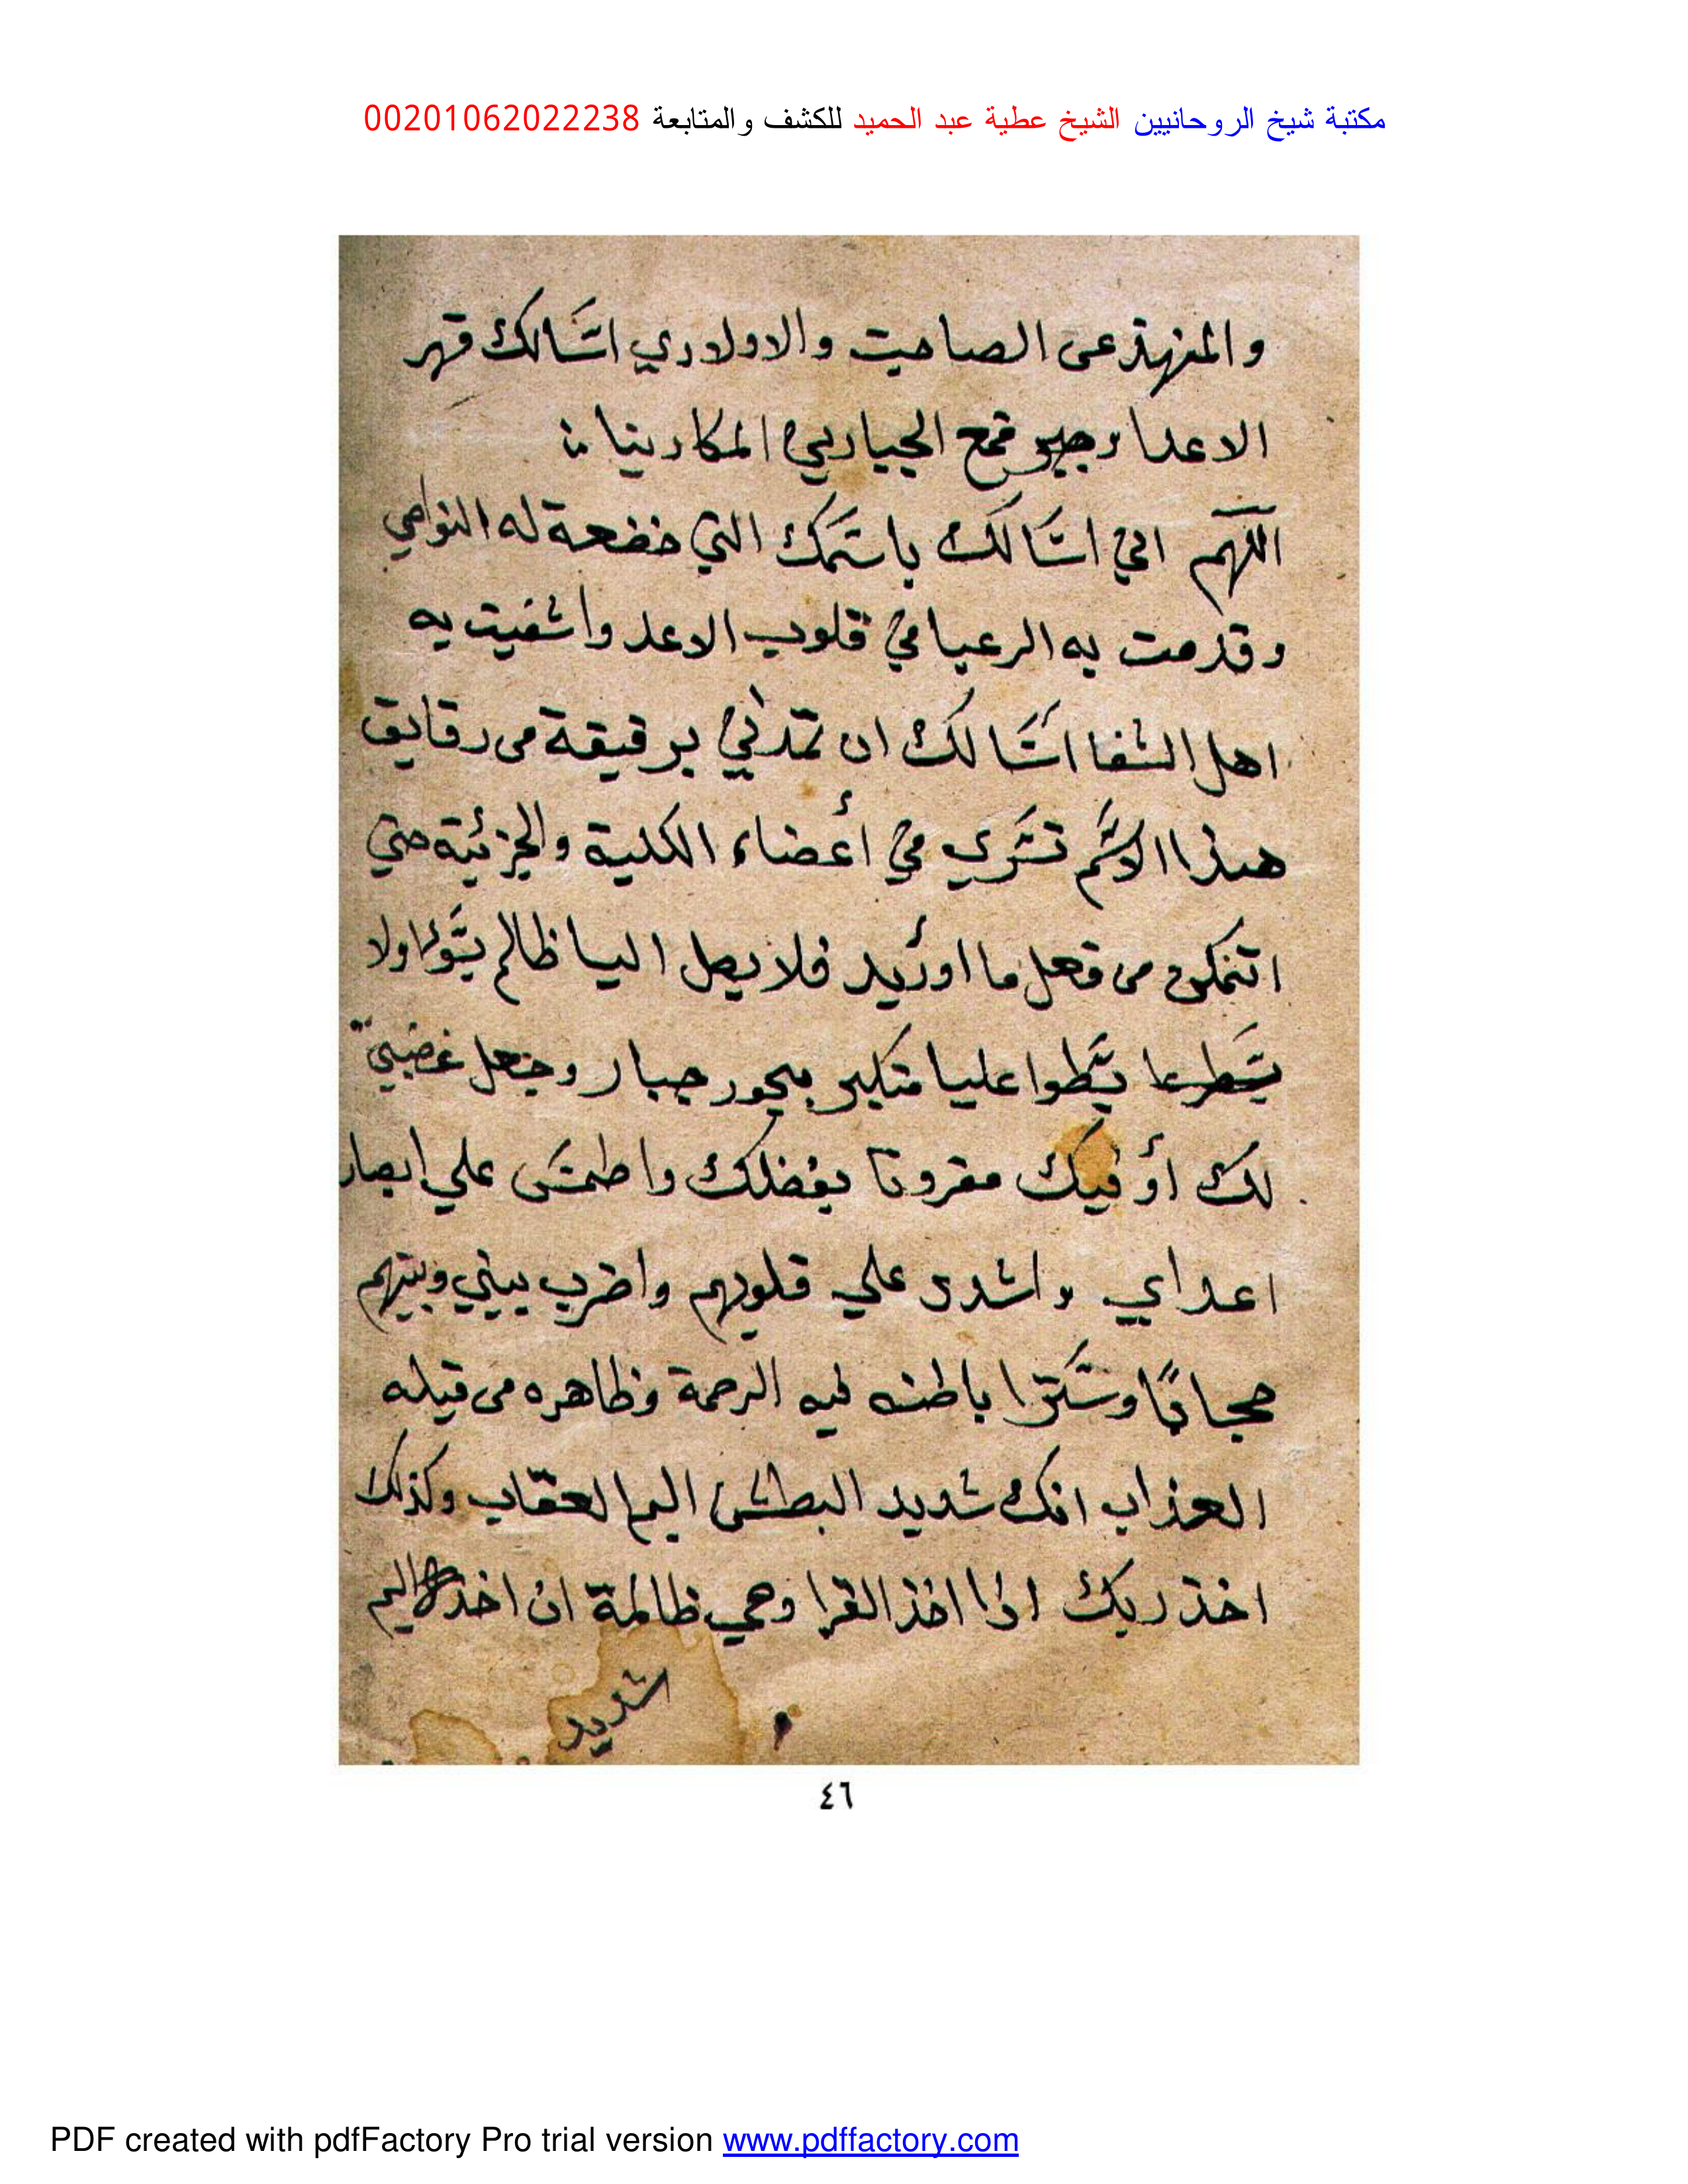 مكتبة شيخ الروحانيين الشيخ عطية عبد الحميد للكشف والمتابعة 00201062022238
والمنزهة عى الصاحبت والاولادري اسالك قهر
الاعدا وجيو قمع الجبارين المكارينا
اللهم اني اسالك باسمك التي خضعة له النواصي
وقدمت به الرعبا في قلوب الاعد واشفيت به
اهل الشفا اسالك ان تمدني برقيقة من رقايق
هذا الاسم تسري في أعضاء الكلية والجزئية حتي
اتنمكن من فعل ما اوريد فلا يصل اليا ظالم بسوا ولا
يسطوا عليا متكبر بجور جبار وجعل غضبي
لك أو فيك مقرونا بفضلك واطمس علي ابصار
اعداي واشدد علي قلوبهم واضرب بيني وبينهم
حجابا وسترا باطنه فيه الرحمة وظاهره من قبله
العذاب انك شديد البطش اليم العقاب وكذلك
اخذ ربك اذا اخذ القرا وهي ظالمة ان اخذه اليم
شديد
٤٦
PDF created with pdfFactory Pro trial version www.pdffactory.com